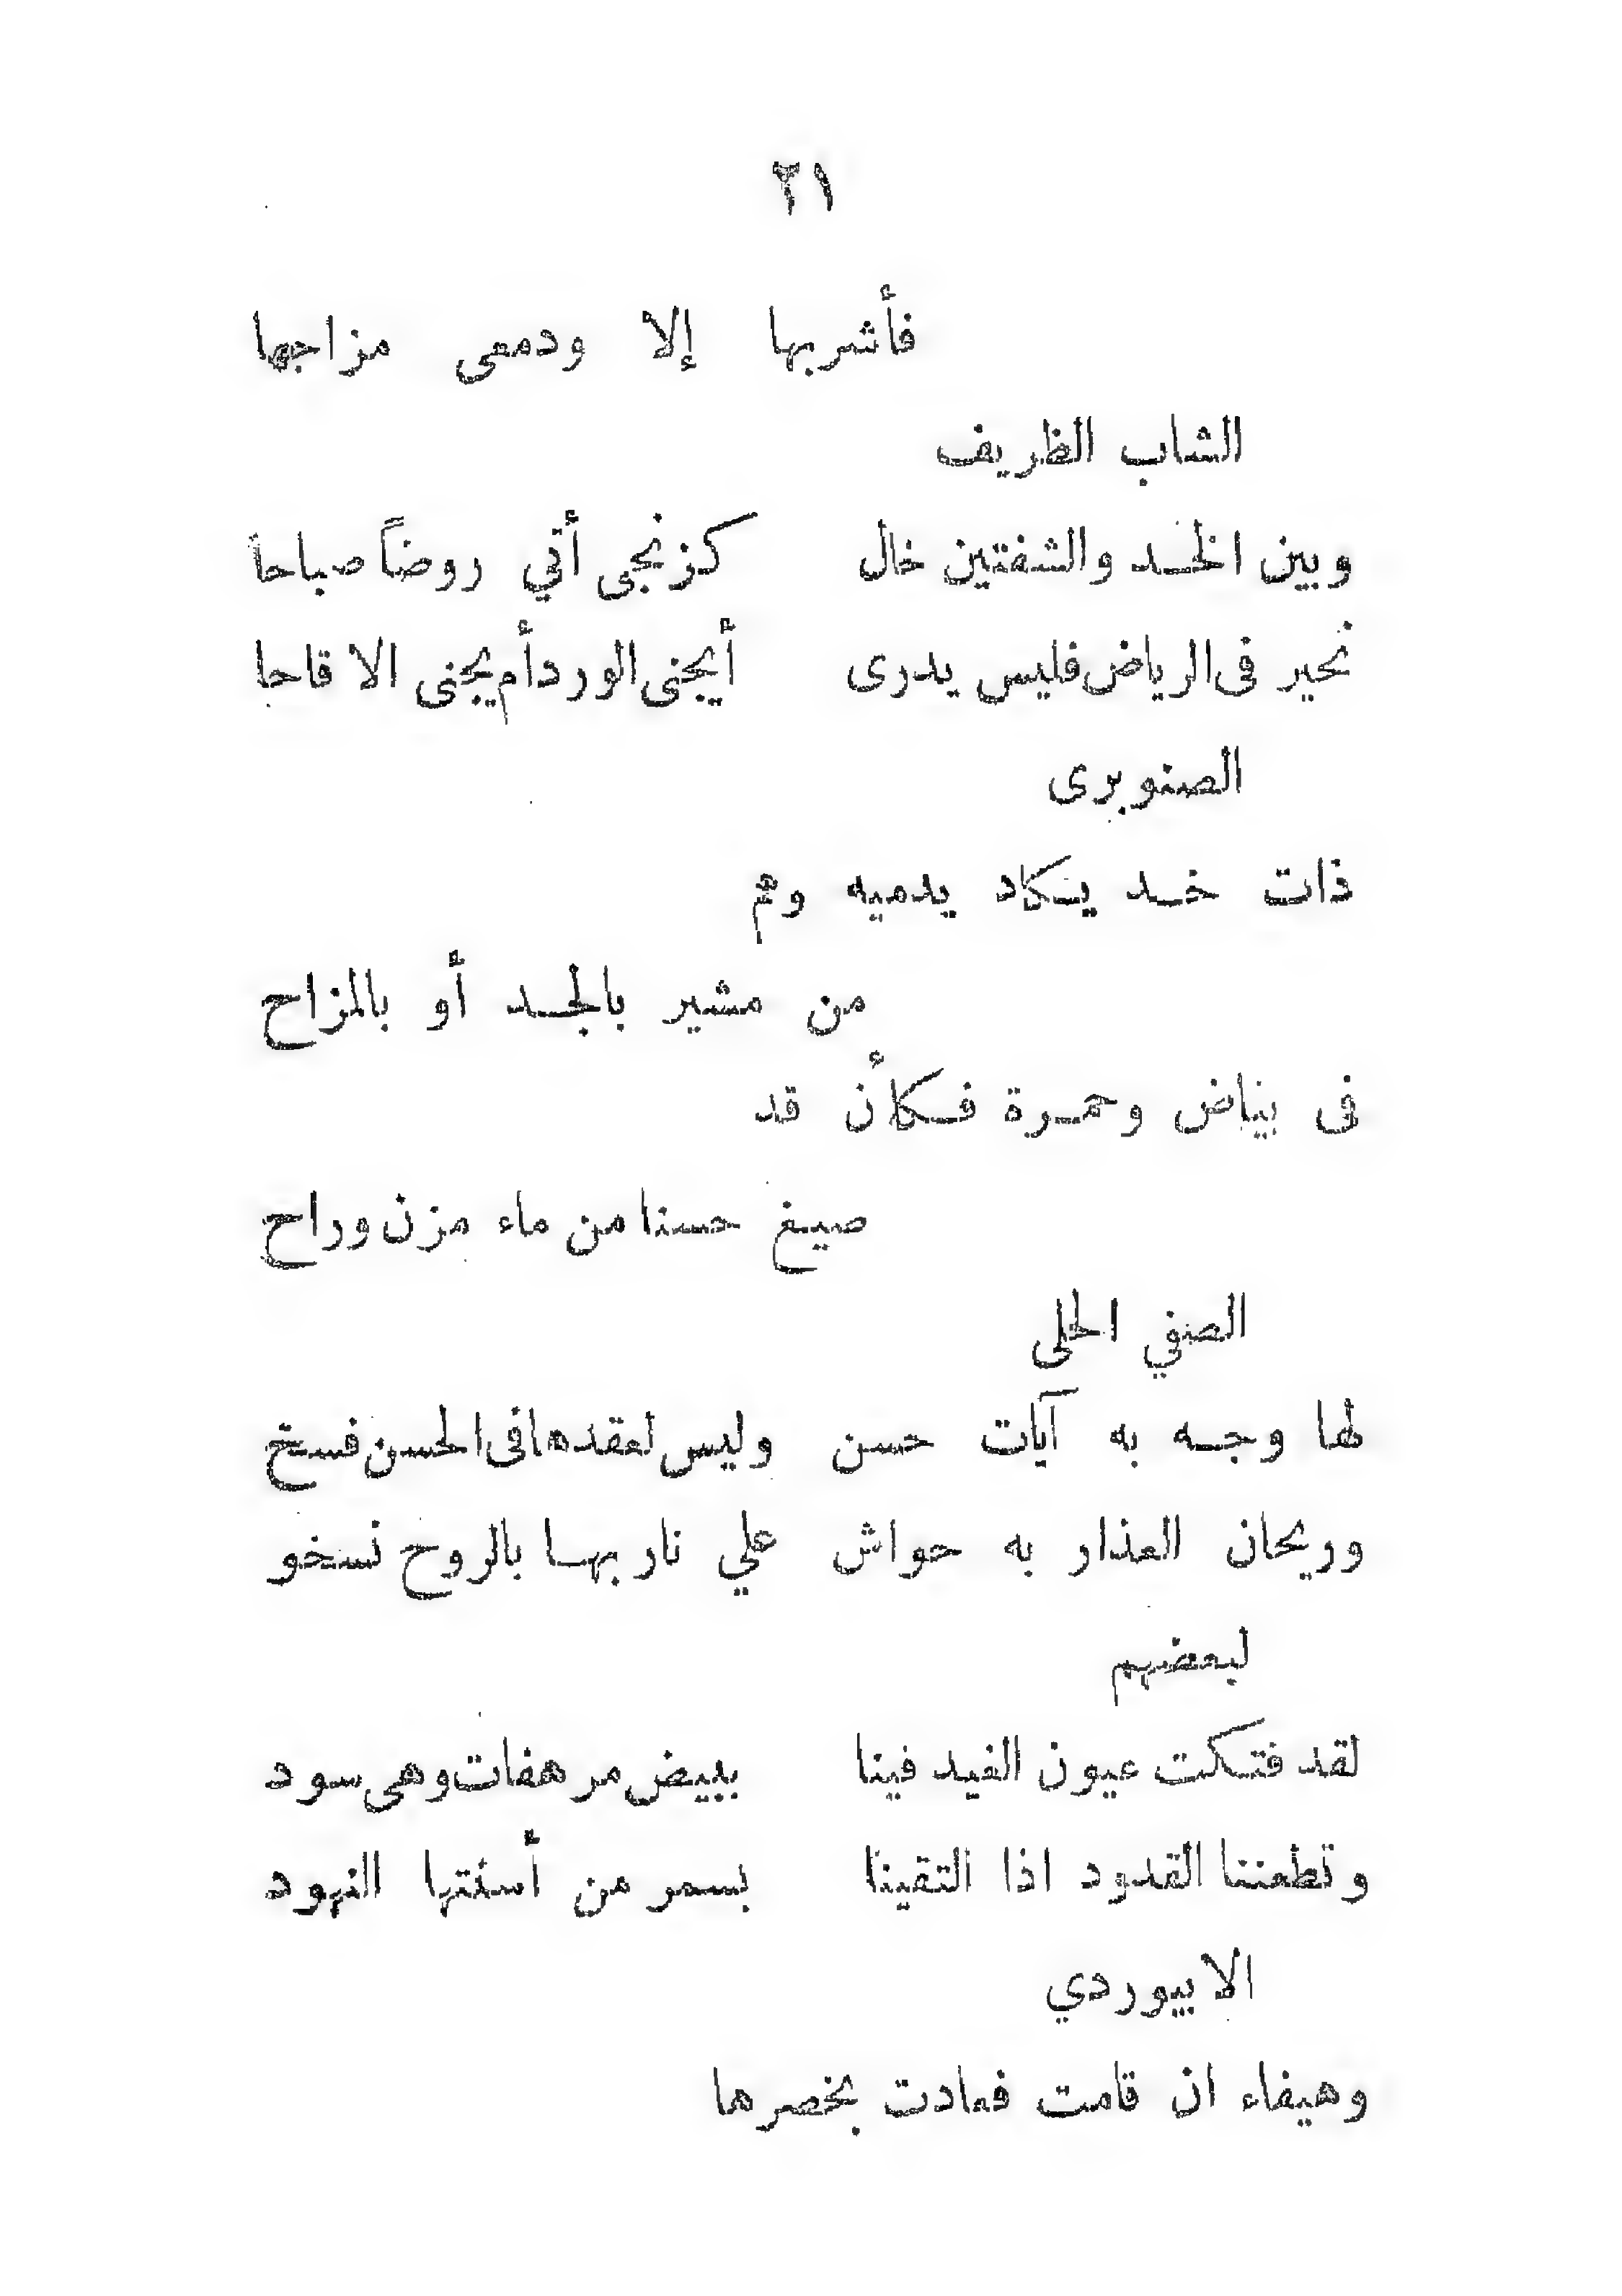 ٢١
فأشربها إلا ودمعى مزاجها
الشاب الظريف
وبين الخد والشفتين خال كزنجى أتي روضاً صباحا
تحير فى الرياض فليس يدرى أيجنى الورد أم يجنى الاقاحا
الصنوبرى
ذات خد يكاد يدميه وهم
من مشير بالجد أو بالمزاح
فى بياض وحمرة فكأن قد
صيغ حسنا من ماء مزن وراح
الصفي الحلى
لها وجه به آيات حسن وليس لعقدها فى الحسن فسخ
وريحان العذار به حواش علي نار بها بالروح نسخو
لبعضهم
لقد فتكت عيون الغيد فينا ببيض مرهفات وهى سود
وتطعننا القدود اذا التقينا بسمر من أسنتها النهود
الابيوردي
وهيفاء ان قامت فمادت بخصرها